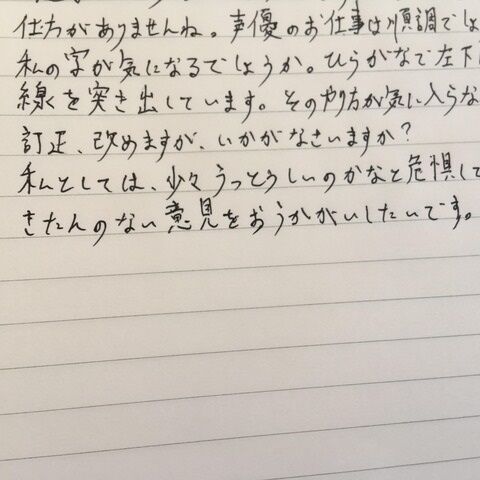 仕方がありませんね。声優のお仕事は順調でしょ
私の字が気になるでしょうか。ひらがなで左下
線を突き出しています。そのやり方が気に入らな
訂正、改めますが、いかがなさいますか?
私としては、少々うっとうしいのかなと危惧して
きたんのない意見をおうかがいしたいです。